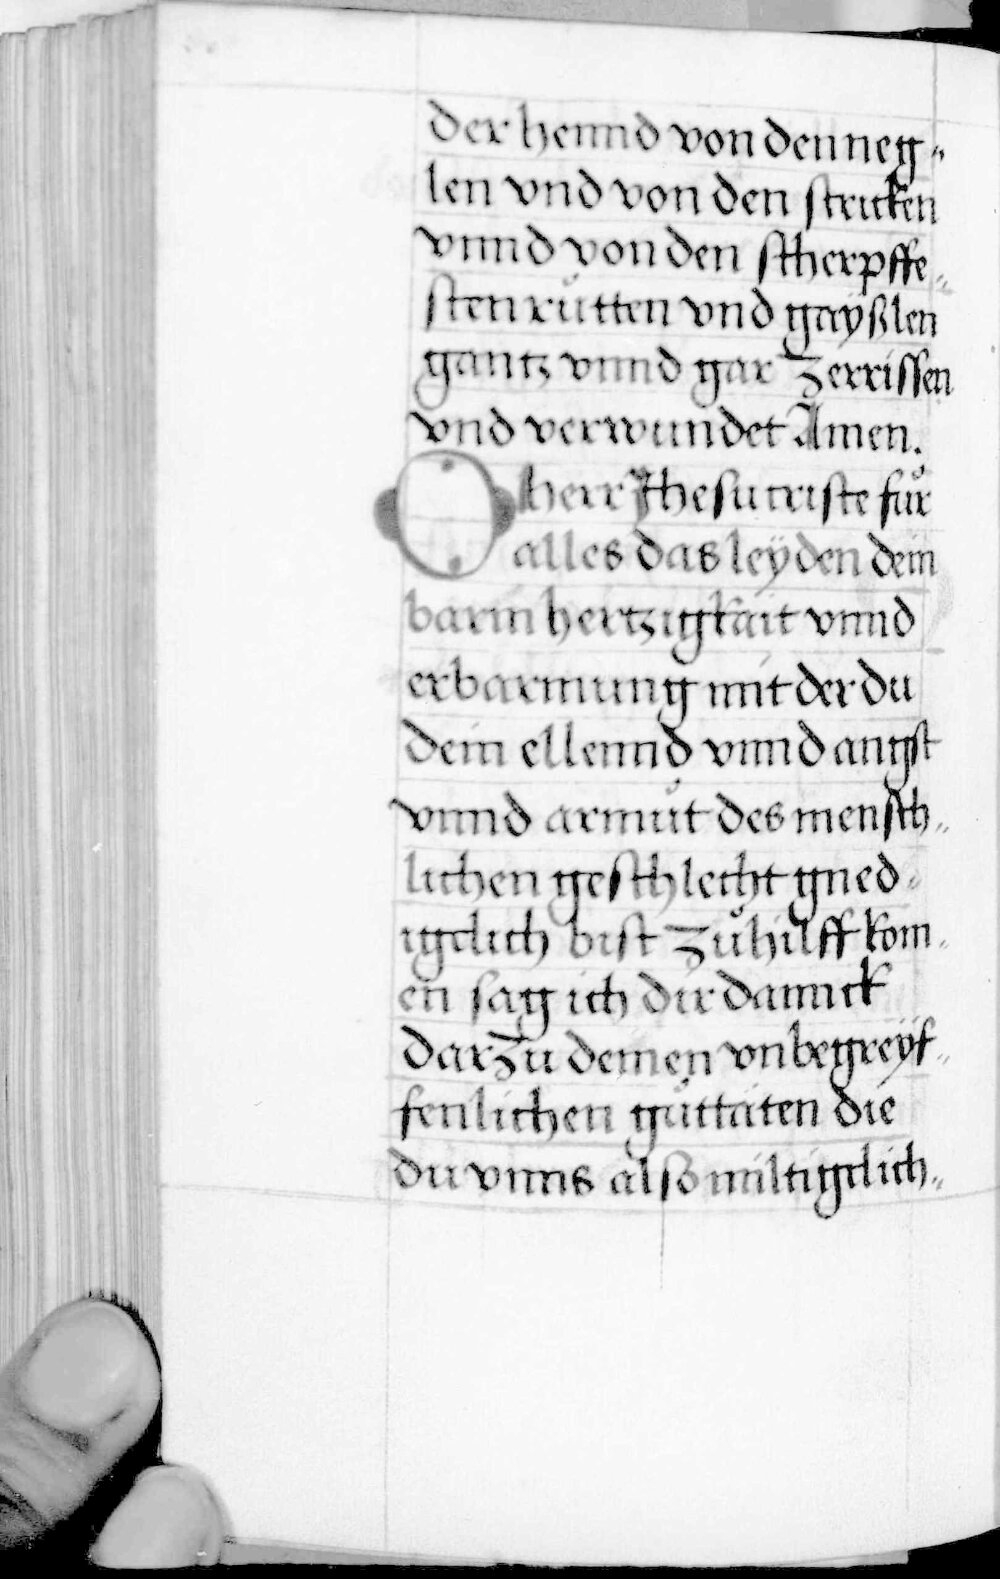 der hennd von den neg„
len vnd von den stricken
vnnd von den scherpffe„
sten růtten vnd gayßlen
gantz vnnd gar Zerrissen
vnd verwundet Amen.
O herr Jhesu criste fůr
alles das leÿden dein
barm hertzigkait vnnd
erbarmung mit der du
dein ellennd vnnd angst
vnnd armůt des mensch„
lichen geschlecht gned„
igclich bist Zůhilff kom„
en sag ich dir dannck
darZu deinen vnbegreÿf„
fenlichen gůttaten die
du vnns also miltigclich„